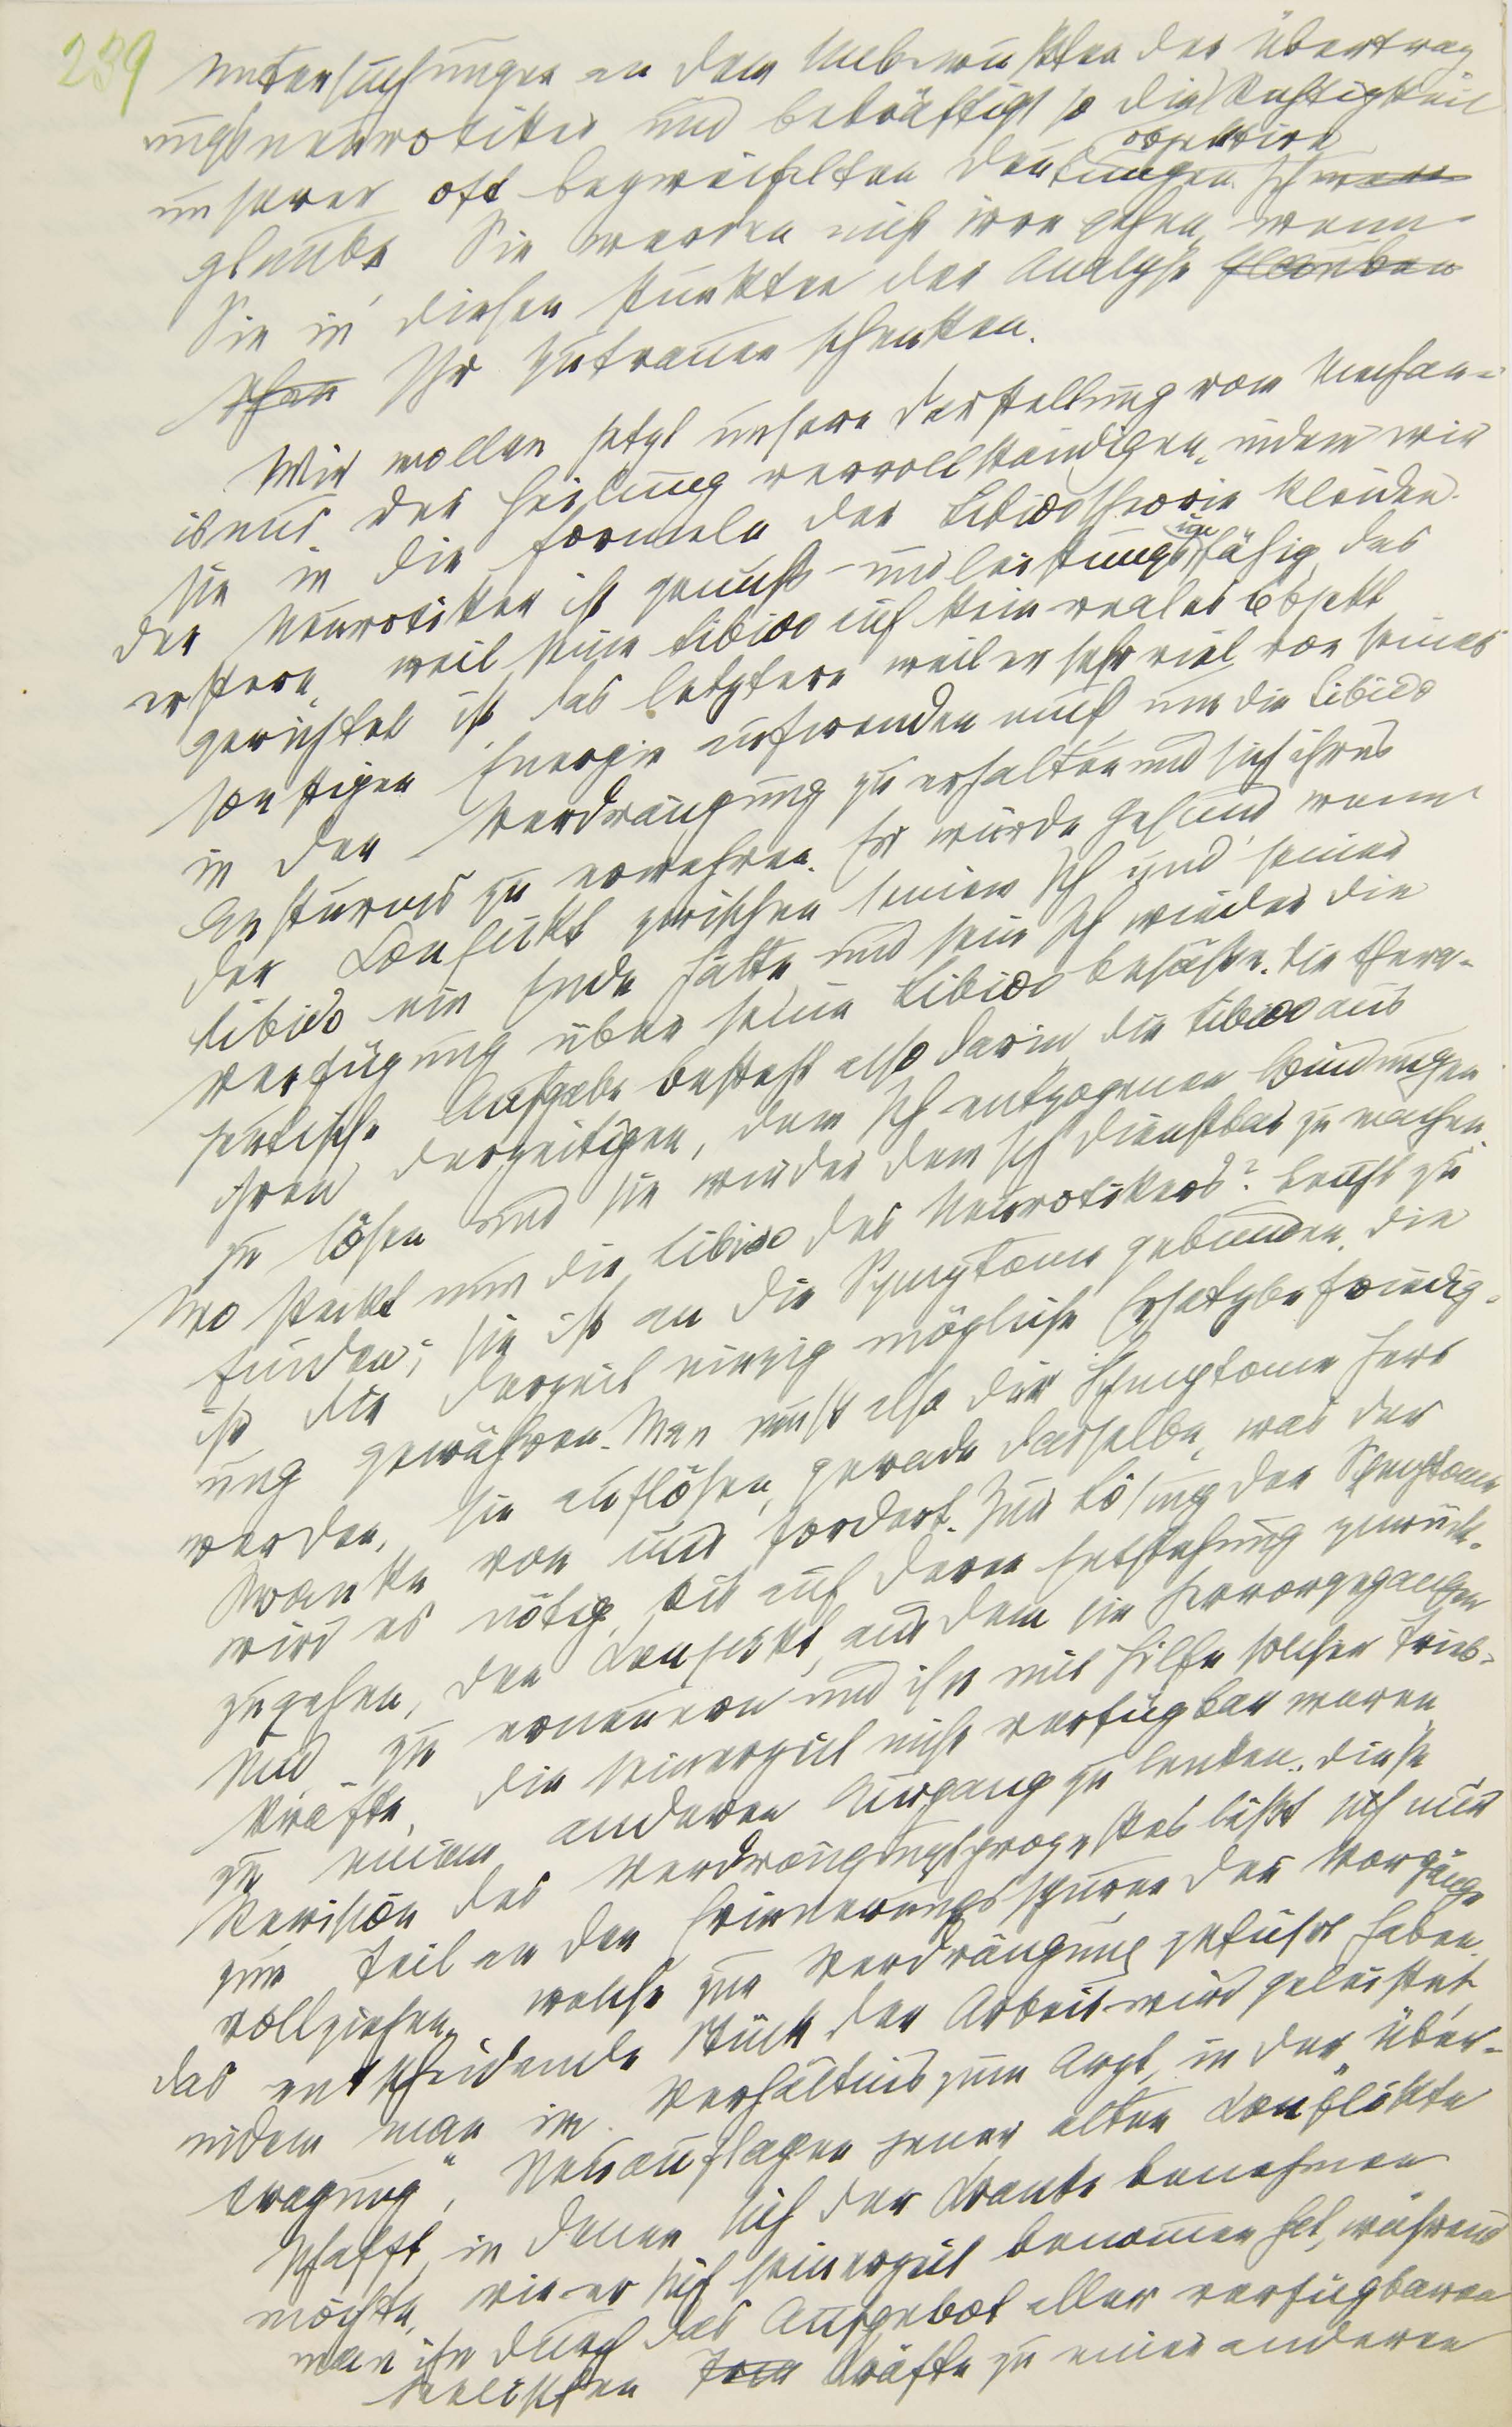 239
Untersuchungen an dem Unbewußten der Übertrag
ungsneurotiker und bekräftigt so die Richtigkeit
objektive
unserer oft bezweifelten Deutungen. Ich
glaube Sie werden nicht irre gehen, wenn
Sie in diesen Punkten der Analyse glauben
Ihr Zutrauen schenken.
Wir wollen jetzt unsere Darstellung vom Mechan-
ismus der Heilung vervollständigen, indem wir
sie in die Formeln der Libidotheorie kleiden.
un
Der Neurotiker ist genuß- und leistungsfähig, das
erstere, weil seine Libido auf kein reales Objekt
gerichtet ist, das letztere weil er sehr viel von seiner
sonstigen Energie aufwenden muß, um die Libido
in der Verdrängung zu erhalten und sich ihres
Ansturms zu erwehren. Er würde gesund wenn
der Konflikt zwischen seinem Ich und seiner
Libido ein Ende hätte, und sein Ich wieder die
Verfügung über seine Libido besäße. Die thera-
peutische Aufgabe besteht also darin, die Libido aus
ihren derzeitigen, dem Ich entzogenen Bindungen
zu lösen und sie wieder dem Ich dienstbar zu machen.
Wo steckt nun die Libido des Neurotikers? Leicht zu
finden; sie ist an die Symptome gebunden, die
ihr die derzeit einzig mögliche Ersatzbefriedig-
ung gewähren. Man muß also der Symptome Herr
werden, sie auflösen, gerade dasselbe, was der
Kranke von uns fordert. Zur Lösung der Symptome
wird es nötig, bis auf deren Entstehung zurück-
zugehen, den Konflikt, aus dem sie hervorgegangen
sind zu erneuern und ihn mit Hilfe solcher Trieb-
kräfte, die seinerzeit nicht verfügbar waren
zu einem anderen Ausgang zu lenken. Diese
Revision des Verdrängungsprozesses läßt sich nur
zum Teil an den Erinnerungsspuren der Vorgänge
vollziehen, welche zur Verdrängung geführt haben.
Das entscheidende Stück der Arbeit wird geleistet,
indem man im Verhältnis zum Arzt, in der „Über-
tragung“, Neuauflagen jener alten Konflikte
schafft, in denen sich der Kranke benehmen
möchte, wie er sich seinerzeit benommen hat, während
man ihn durch das Aufgebot aller verfügbaren
seelischen Kräfte zu einer anderen